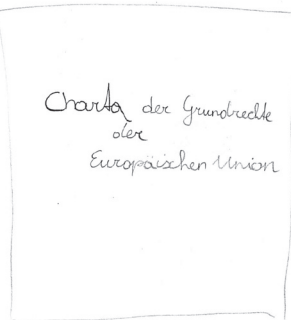 Charta der Grundrechte
der
Europäischen Union